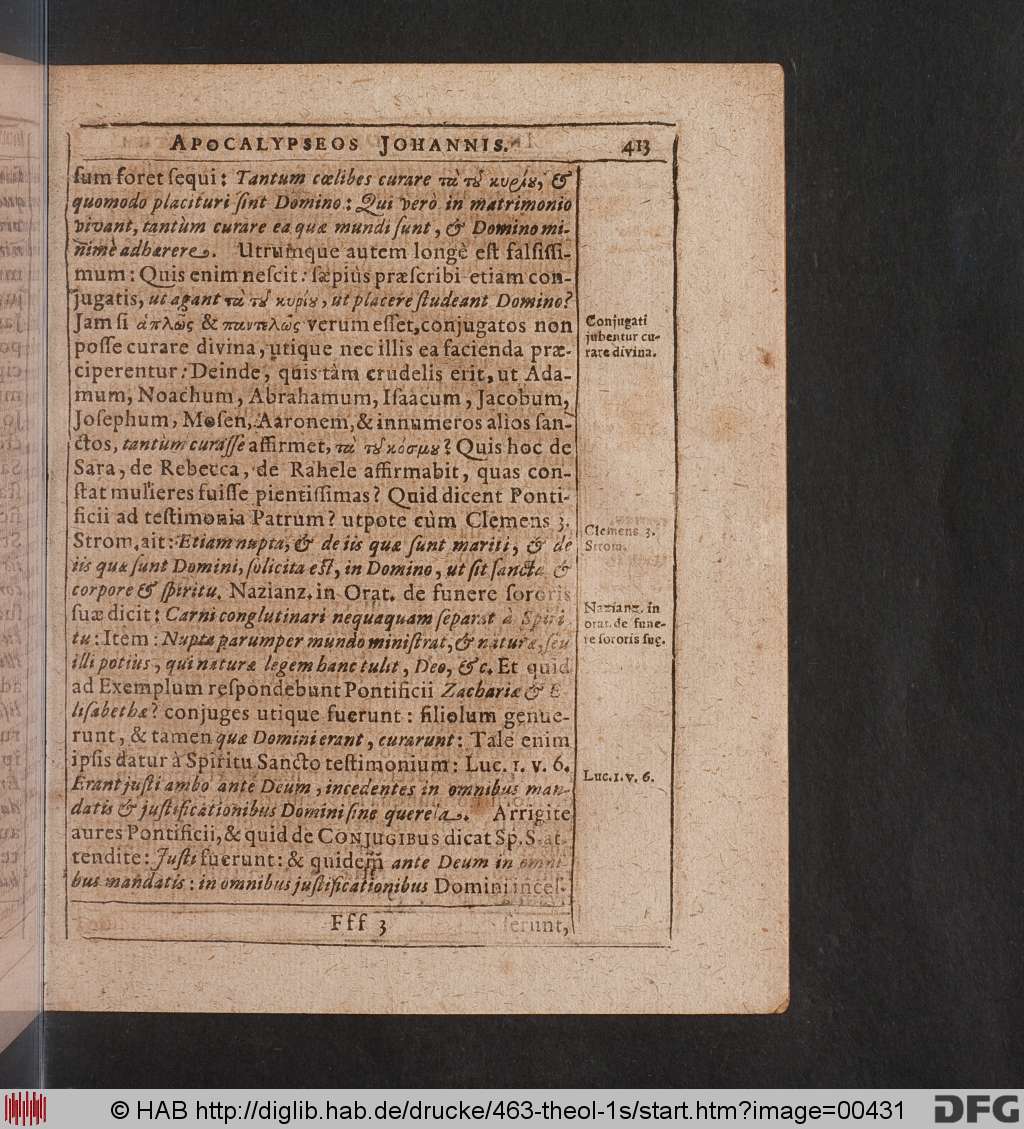 APOCALYPSEOS JOHANNIS. 413
sum foret sequi: Tantum cœlibes curare τὰ τȣ͂ κυρίȣ, &
quomodo placituri sint Domino: Qui verò in matrimonio
vivant, tantùm curare ea quæ mundi sunt, & Domino mi-
nimè adhærere. Utrumque autem longè est falsissi-
mum: Quis enim nescit: sæpiùs præscribi etiam con-
jugatis, ut agant τὰ τȣ͂ κυρίȣ, ut placere studeant Domino?
Jam si ἁπλῶς & παντελῶς verum esset, conjugatos non
Conjugati
posse curare divina, utique nec illis ea facienda præ-
jubentur cu-
rare divina.
ciperentur: Deinde, quis tàm crudelis erit, ut Ada-
mum, Noachum, Abrahamum, Isaacum, Jacobum,
Josephum, Mosen, Aaronem, & innumeros alios san-
ctos, tantùm curasse affirmet, τὰ τȣ͂ κόσμȣ? Quis hoc de
Sara, de Rebecca, de Rahele affirmabit, quas con-
stat mulieres fuisse pientissimas? Quid dicent Ponti-
ficii ad testimonia Patrum? utpote cùm Clemens 3.
Clemens 3.
Strom. ait: Etiam nupta, & de iis quæ sunt mariti, & de
Strom.
iis quæ sunt Domini, solicita est, in Domino, ut sit sancta &
corpore & spiritu. Nazianz. in Orat. de funere sororis
Nazianz. in
suæ dicit: Carni conglutinari nequaquam separat à Spiri-
orat. de fune-
tu: Item: Nupta parumper mundo ministrat, & naturæ, seu
re sororis suę.
illi potius, qui naturæ legem hanc tulit, Deo, &c. Et quid
ad Exemplum respondebunt Pontificii Zachariæ & E-
lisabethæ? conjuges utique fuerunt: filiolum genue-
runt, & tamen quæ Domini erant, curarunt: Tale enim
ipsis datur à Spiritu Sancto testimonium: Luc. 1. v. 6.
Luc. 1. v. 6.
Erant justi ambo ante Deum, incedentes in omnibus man-
datis & justificationibus Domini sine querela. Arrigite
aures Pontificii, & quid de CONJUGIBUS dicat Sp. S. at-
tendite: Justi fuerunt: & quidem ante Deum in omni-
bus mandatis: in omnibus justificationibus Domini inces-
Fff 3 serunt,
© HAB http://diglib.hab.de/drucke/463-theol-1s/start.htm?image=00431 DFG